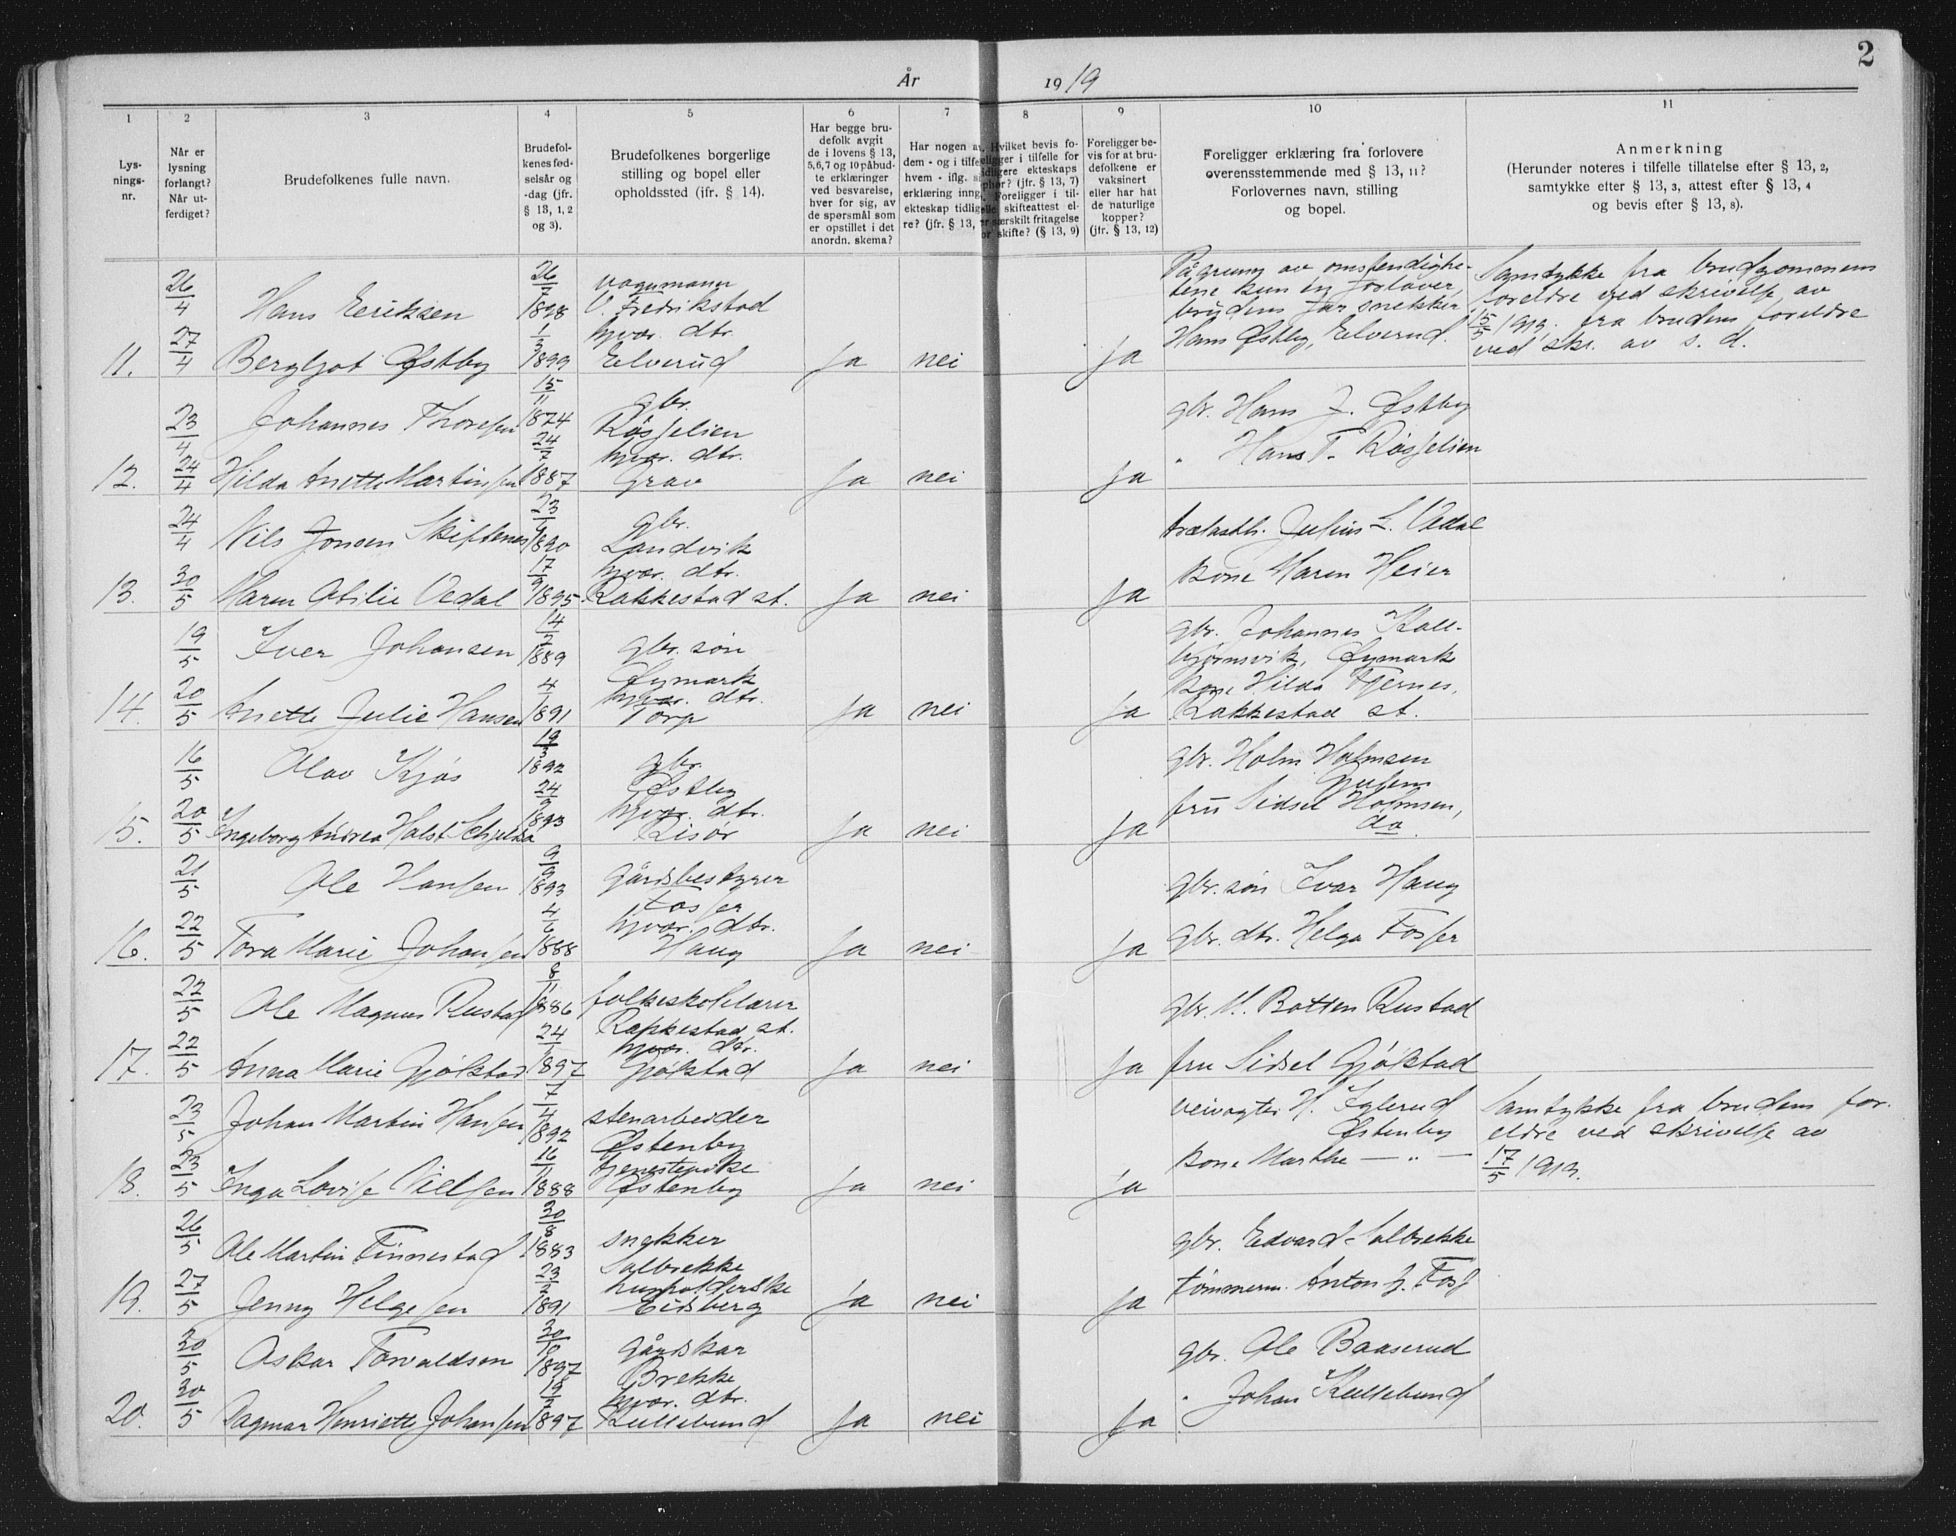 2
År 1919
1 2 3 4 5 6 7 8 9 10 11
Lysnings-nr.
Når er lysning forlangt? Når utferdiget?
Brudefolkenes fulle navn.
Brudefolkenes fødselsår og -dag (jfr. § 13, 1, 2 og 3).
Brudefolkenes borgerlige stilling og bopel eller opholdssted (jfr. § 14).
Har begge brudefolk avgit de i lovens § 13, 5,6,7 og 10 påbudte erklæringer ved besvarelse, hver for sig, av de spørsmål som er opstillet i det anordn. skema?
Foreligger bevis for at brudefolkene er vaksinert eller har hat de naturlige kopper? (jfr. § 13, 12)
Foreligger erklæring fra forlovere overensstemmende med § 13, 11? Forlovernes navn, stilling og bopel.
Anmerkning
(Herunder noteres i tilfelle tillatelse efter § 13, 2, samtykke efter § 13, 3, attest efter § 13, 4 og bevis efter § 13, 8).
26/4 Hans Eriksen 1898 V. Fredrikstad
På grunn av omstendighetene kun en forlover, brudens far snekker Hans Østby, Elverud.
Samtykke fra brudgommens foreldre ved skrivelse av 15/5 1919. fra brudens foreldre ved skr. av s. d.
11. 27/4 Bergljot Østby 1/3 1899 hjvær. dtr. Elverud Ja nei Ja
23/4 Johannes Thoresen 15/11 1874 gbr. Røsjelien gbr. Hans J. Østby
12. 24/4 Hilda Anette Martinsen 24/7 1887 hjvær. dtr. Grav Ja nei Ja " Hans T. Røsjelien
24/4 Nils Jonsen Skiftenes 1890 gbr. Landvik trælasth. Julius L. Vedal
13. 20/5 Maren Otilie Vedal 17/9 1895 hjvær. dtr. Rakkestad st. Ja nei Ja kone Maren Heier
19/5 Iver Johansen 14/7 1889 gbr. søn Øymark gbr. Johannes Kallbjørnsvik, Øymark
14. 20/5 Anette Julie Hansen 4/1 1891 hjvær. dtr. Torp Ja nei Ja kone Hilda Fjernes, Rakkestad st.
16/5 Olav Kjøs 19/3 1892 gbr. Østby gbr. Holm Holmsen
15. 20/5 Ingeborg Andrea Holst 24/9 1893 hjvær. dtr. Risør Ja nei Ja fru Sidsel Holmsen, do.
21/5 Ole Hansen 9/9 1893 gårdsbestyrer Fosser gbr. søn Ivar Haug
16. 22/5 Tora Marie Johansen 4/6 1888 hjvær. dtr. Haug Ja nei Ja gbr. dtr. Helga Fosser
22/5 Ole Magnus Rustad 8/11 1886 folkeskolelærer Rakkestad st. gbr. M. Botten Rustad
17. 22/5 Anna Marie Gjølstad 24/1 1897 hjvær. dtr. Gjølstad Ja nei Ja fru Sidsel Gjølstad
23/5 Johan Martin Hansen 7/4 1892 stenarbeider Østenby veivogter H. Østenby
Samtykke fra brudens foreldre ved skrivelse av 17/5 1913.
18. 23/5 Inga Lovise Nielsen 16/11 1888 tjenestepike Østenby Ja nei Ja kone Marthe — " —
26/5 Ole Martin Finnestad 30/8 1883 snekker Solbrekke gbr. Edvard Solbrekke
19. 27/5 Jenny Helgesen 23/2 1891 husholderske Eidsberg Ja nei Ja tømmerm. Anton J. Foss
20/5 Oskar Torvaldsen 1897 gårdskar Brekke gbr. Ole Baaserud
20. 30/5 Dagmar Henriette Johansen 1897 hjvær. dtr. Kullebund Ja nei Ja " Johan Kullebund